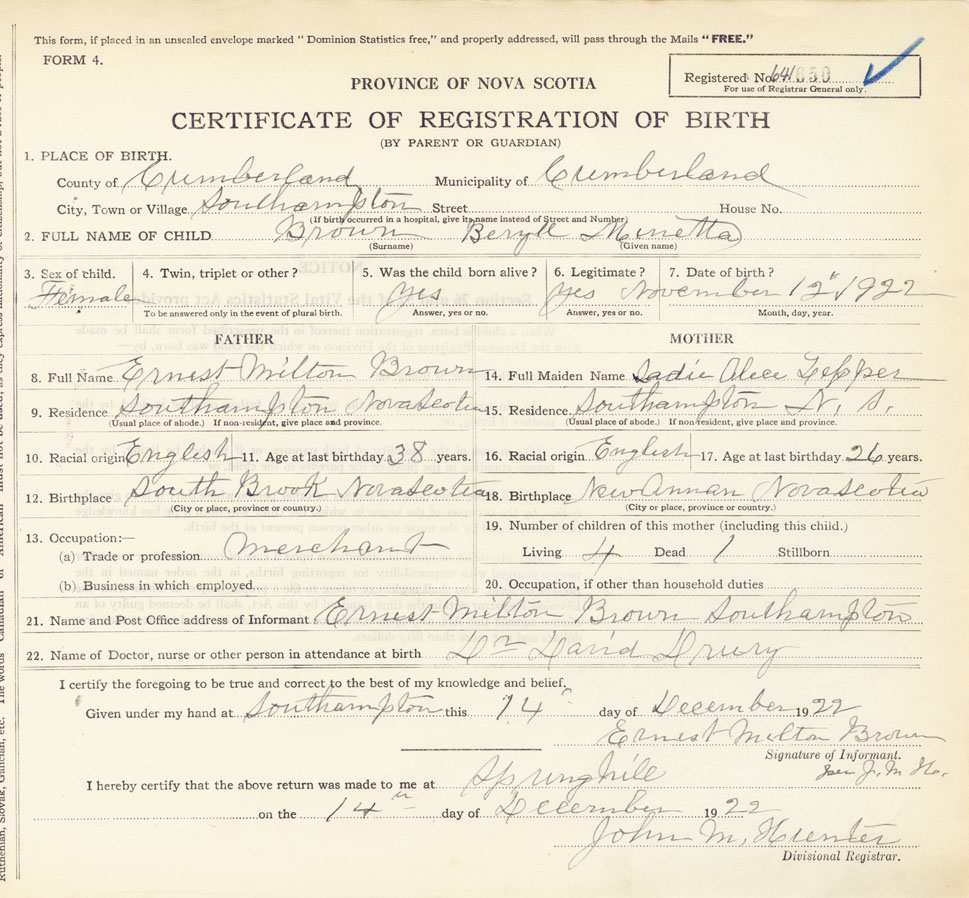 This form, if placed in an unsealed envelope marked "Dominion Statistics free," and properly addressed, will pass through the Mails "FREE."
FORM 4.
Registered No. 641650
For use of Registrar General only.
PROVINCE OF NOVA SCOTIA
CERTIFICATE OF REGISTRATION OF BIRTH
(BY PARENT OR GUARDIAN)
1. PLACE OF BIRTH.
County of Cumberland Municipality of Cumberland
City, Town or Village Southampton Street House No.
(If birth occurred in a hospital, give its name instead of Street and Number)
2. FULL NAME OF CHILD Brown Beryll Minetta
(Surname) (Given name)
3. Sex of child. 4. Twin, triplet or other? 5. Was the child born alive? 6. Legitimate? 7. Date of birth?
Female yes yes November 12" 1922
To be answered only in the event of plural birth. Answer, yes or no. Answer, yes or no. Month, day, year.
FATHER MOTHER
8. Full Name Ernest Milton Brown 14. Full Maiden Name Sadie Alice Tepper
9. Residence Southampton Nova Scotia 15. Residence. Southampton N. S.
(Usual place of abode.) If non-resident, give place and province. (Usual place of abode.) If non-resident, give place and province.
10. Racial origin English 11. Age at last birthday 38 years. 16. Racial origin English 17. Age at last birthday 26 years.
12. Birthplace South Brook Nova Scotia 18. Birthplace New Annan Nova Scotia
(City or place, province or country.) (City or place, province or country.)
13. Occupation:— 19. Number of children of this mother (including this child.)
(a) Trade or profession Merchant Living 4 Dead 1 Stillborn
(b) Business in which employed 20. Occupation, if other than household duties
21. Name and Post Office address of Informant Ernest Milton Brown Southampton
22. Name of Doctor, nurse or other person in attendance at birth Dr David Drury
I certify the foregoing to be true and correct to the best of my knowledge and belief.
Given under my hand at Southampton this 14 day of December 1922
Ernest Milton Brown
Signature of Informant.
per J. M. H.
I hereby certify that the above return was made to me at Springhill
on the 14th day of December 1922
John M. Hunter
Divisional Registrar.